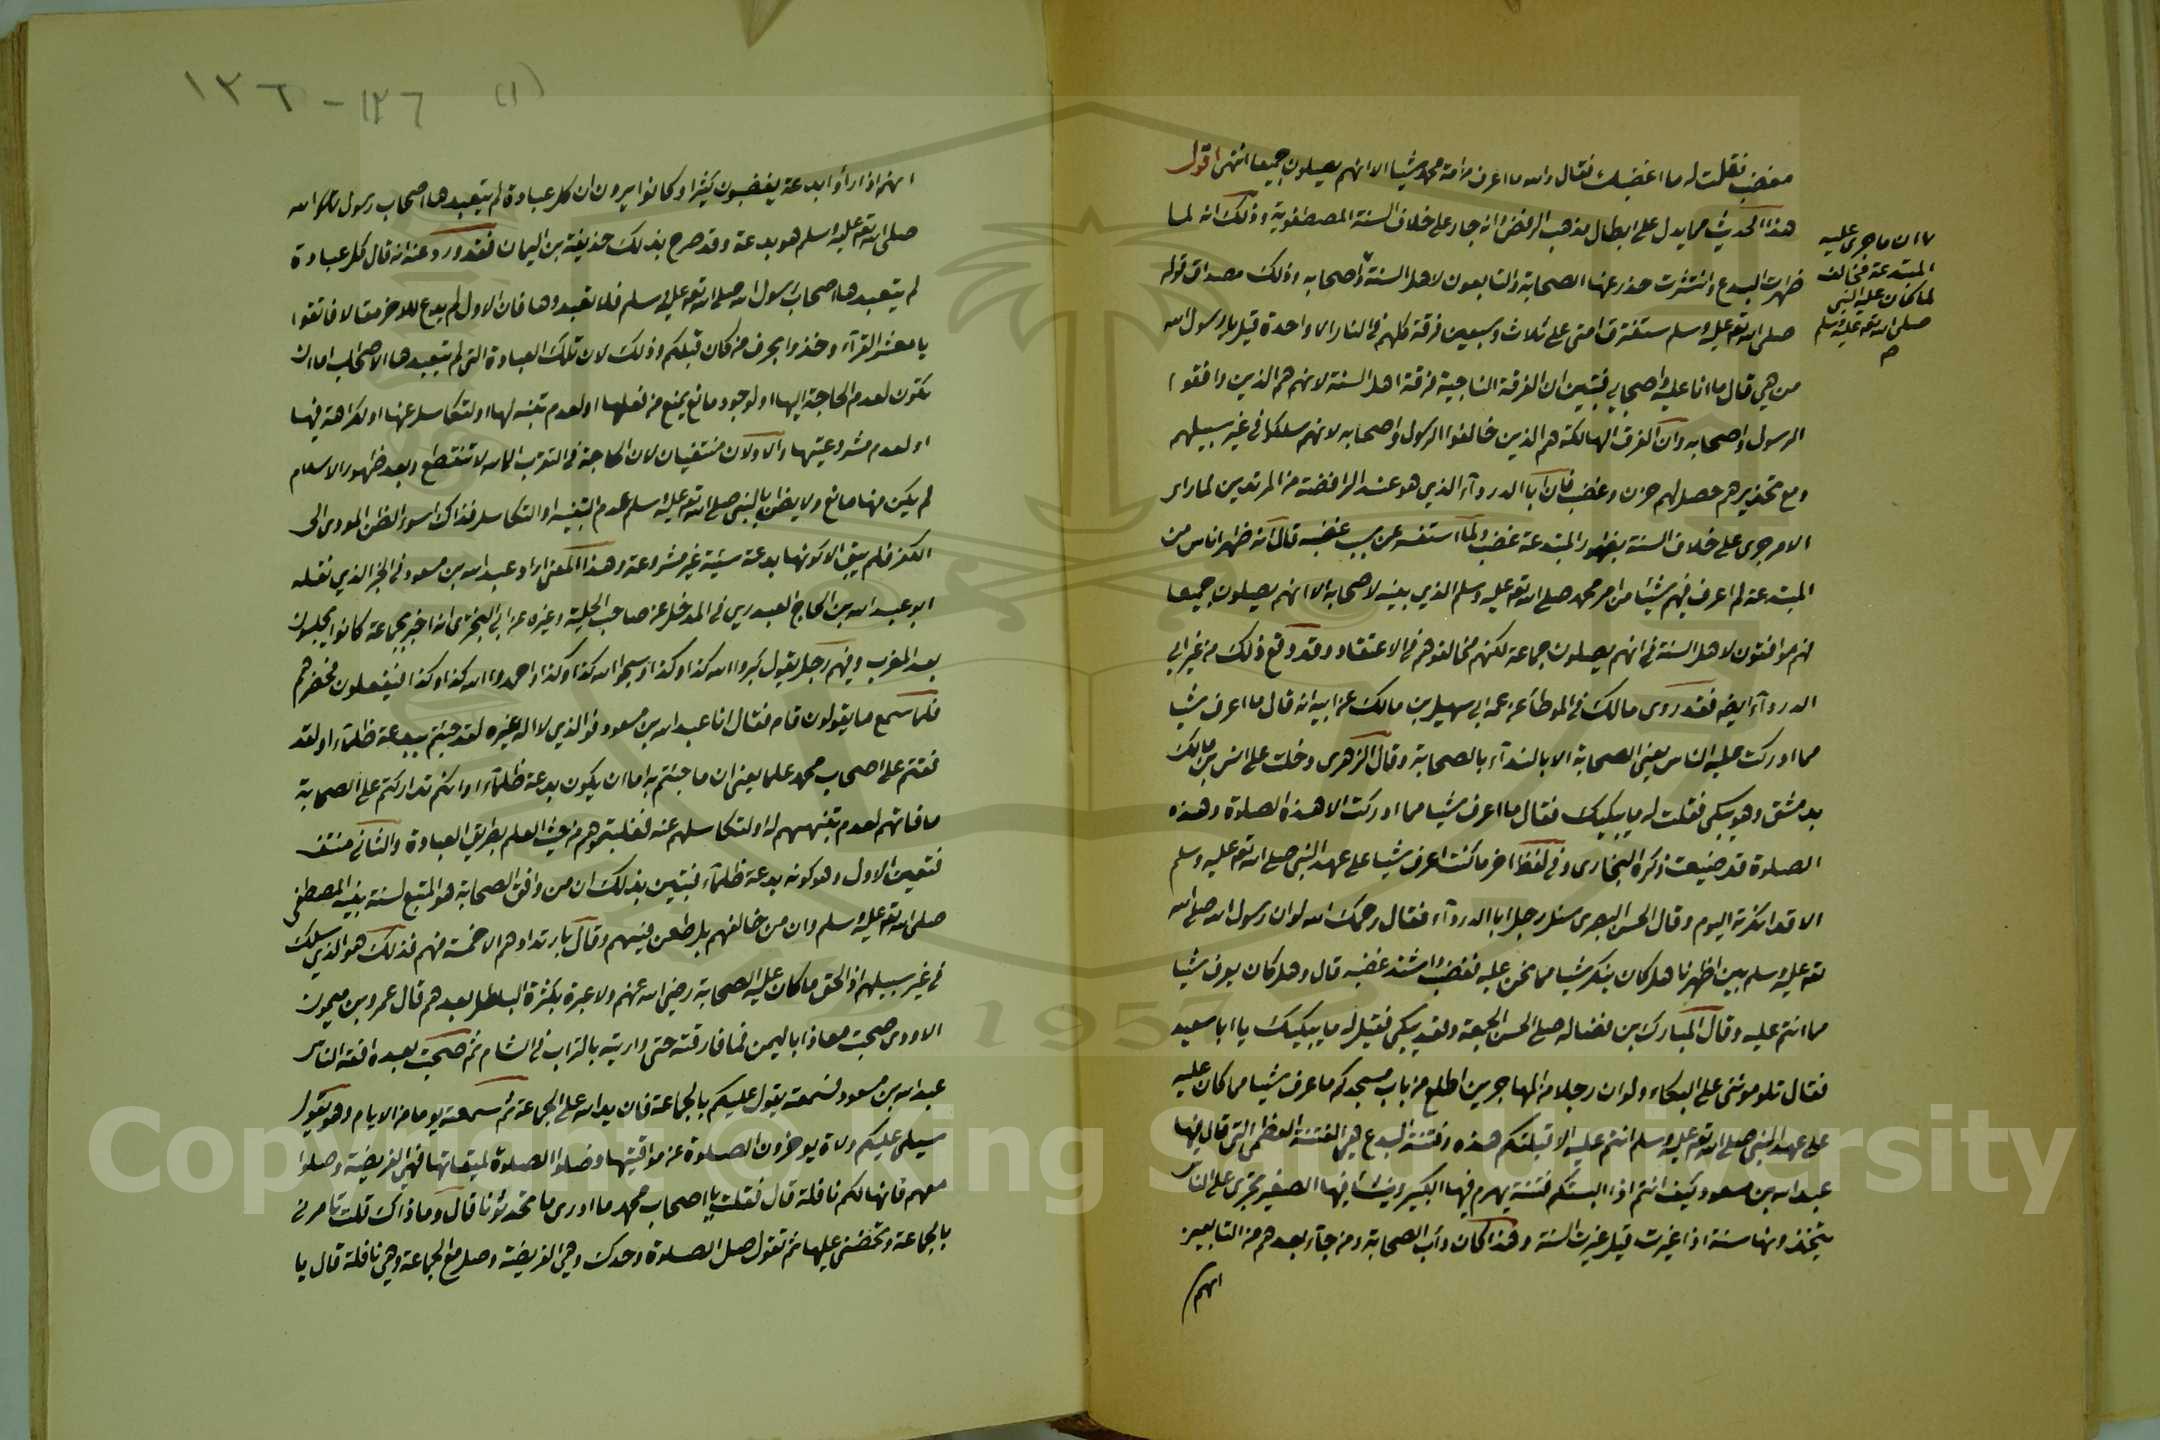 مغضب فقلت له ما اغضبك فقال والله ما اعرف من امة محمد شيئا الا انهم يصلون جميعا انتهى اقول
هذا الحديث مما يدل على ابطال مذهب الرفض وانه جار على خلاف السنة المصطفوية وذلك انه لما
ظهرت البدع وانتشرت حذر عنها الصحابة والتابعون لاهل السنة واصحابه وذلك مصداق قوله
صلى الله تعه عليه وسلم ستفترق امتى على ثلاث وسبعين فرقة كلهم فى النار الا واحدة قيل يا رسول الله
من هي قال ما انا عليه واصحابي فتبين ان الفرقة الناجية فرقة اهل السنة لانهم هم الذين وافقوا
الرسول واصحابه وان الفرق الهالكة هم الذين خالفوا الرسول واصحابه لانهم سلكوا في غير سبيلهم
ومع تحذيرهم حصل لهم حزن وغضب فان ابا الدردآء الذي هو عند الرافضة من المرتدين لما راى
الامر جرى على خلاف السنة بظهور المبتدعة غضب ولما استفسر عن سبب غضبه قال انه ظهر اناس من
المبتدعة لم اعرف فيهم شيئا من امر محمد صلى الله تعه عليه وسلم الذي بينه لاصحابه الا انهم يصلون جميعا
فهم موافقون لاهل السنة في انهم يصلون جماعة لكنهم مخالفوهم فى الاعتقاد وقد وقع ذلك من غير ابي
الدردآء ايضه فقد روى مالك فى الموطأ عن عمه ابي سهيل بن مالك عن ابيه انه قال ما اعرف شيئا
مما ادركت عليه الناس يعني الصحابة الا بالندآء بالصحابة وقال الزهرى دخلت على انس بن مالك
بدمشق وهو يبكى فقلت له ما يبكيك فقال ما اعرف شيئا مما ادركت الا هذه الصلوة وهذه
الصلوة قد ضيعت ذكره البخارى وفى لفظ اخر ما كنت اعرف شيئا على عهد النبي صلى الله تعه عليه وسلم
الا قد انكرته اليوم وقال الحسن البصرى سئل رجل ابا الدردآء فقال رحمك الله لو ان رسول الله صلى الله
تعه عليه وسلم بين اظهرنا هل كان ينكر شيئا مما نحن عليه فغضب واشتد غضبه قال وهل كان يعرف شيئا
مما انتم عليه وقال المبارك بن فضاله صلى الحسن الجمعة وقعد يبكى فقيل له ما يبكيك يا ابا سعيد
فقال تلوموننى على البكاء ولو ان رجلا من المهاجرين اطلع من باب مسجدكم ما عرف شيئا مما كان عليه
على عهد النبي صلى الله تعه عليه وسلم انتم عليه الا قبلتكم هذه وفتنة البدع هي الفتنة العظمى التى قال فيها
عبد الله بن مسعود كيف انتم اذا البستكم فتنة يهرم فيها الكبير وينشا فيها الصغير تجرى على الناس
يتخذونها سنة اذا غيرت قيل غيرت السنة وهذا كان دأب الصحابة ومن جآء بعدهم من التابعين
انهم
١٧ ان ما جرى عليه
المبتدعة مخالف
لما كان عليه النبي
صلى الله تعه عليه وسلم
م
١٣٦ - ١٢٦ (١)
انهم اذا رأوا بدعة يغضبون كثيرا وكانوا يرون ان كل عبادة لم يتعبدها اصحاب رسول الله
صلى الله تعه عليه وسلم هو بدعة وقد صرح بذلك حذيفة بن اليمان فقد ورد عنه انه قال كل عبادة
لم يتعبدها اصحاب رسول الله صلى الله تعه عليه وسلم فلا تعبدوها فان الاول لم يدع للاخر مقالا فاتقوا
يا معشر القرآء وخذوا بحرف من كان قبلكم وذلك لان تلك العبادة التى لم يتعبدها الاصحاب اما ان
يكون لعدم الحاجة اليها او لوجود مانع يمنع من فعلها او لعدم تنبه لها او لتكاسل عنها او لكراهة فيها
او لعدم مشروعيتها والاولان منتفيان لان الحاجة فى التقرب الى الله لا تنقطع وبعد ظهور الاسلام
لم يكن منها مانع ولا يظن بالنبي صلى الله تعه عليه وسلم عدم التنبه او التكاسل فذاك اسوء الظن المودى الى
الكفر فلم يبق الا كونها بدعة سيئة غير مشروعة وهذا المعنى اراد عبد الله بن مسعود فى الخبر الذي نقله
ابو عبد الله بن الحاج العبدرى فى المدخل عن صاحب الحلية وغيره عن ابي البخترى انه اخبر بجماعة كانوا يجلسون
بعد المغرب وفيهم رجل يقول كبروا الله كذا وكذا وسبحوا الله كذا وكذا واحمدوا الله كذا وكذا فيفعلون فحضرهم
فلما سمع ما يقولون قام فقال انا عبد الله بن مسعود فو الذي لا اله غيره لقد جئتم ببدعة ظلمآء او لقد
فقتم على اصحاب محمد علما يعني ان ما جئتم به اما ان يكون بدعة ظلمآء او انكم تداركتم على الصحابة
ما فاتهم لعدم تنبههم له او لتكاسلهم عنه فغلبتموهم من حيث العلم بطريق العبادة والثانى منتف
فتعين الاول وهو كونه بدعة ظلمآء فتبين بذلك ان من وافق الصحابة هو المتبع لسنة نبيه المصطفى
صلى الله تعه عليه وسلم وان من خالفهم بل طعن فيهم وقال بارتدادهم الا خمسة منهم فذلك هو الذي سلك
فى غير سبيلهم اذ الحق ما كان عليه الصحابة رضي الله عنهم ولا عبرة بكثرة الباطل بعدهم قال عمرو بن ميمون
الاودى صحبت معاذا باليمن فما فارقته حتى واريته بالتراب فى الشام ثم صحبت بعده افقه الناس
عبد الله بن مسعود فسمعته يقول عليكم بالجماعة فان يد الله على الجماعة ثم سمعته يوما من الايام وهو يقول
سيلى عليكم ولاة يؤخرون الصلوة عن مواقيتها فصلوا الصلوة لميقاتها فهي الفريضة وصلوا
معهم فانها لكم نافلة قال فقلت يا اصحاب محمد ما ادرى ما تحدثونا قال وما ذاك قلت تامرنى
بالجماعة وتحضنى عليها ثم تقول صل الصلوة وحدك وهي الفريضة وصل مع الجماعة وهي نافلة قال يا
Copyright © King Saud University
1957